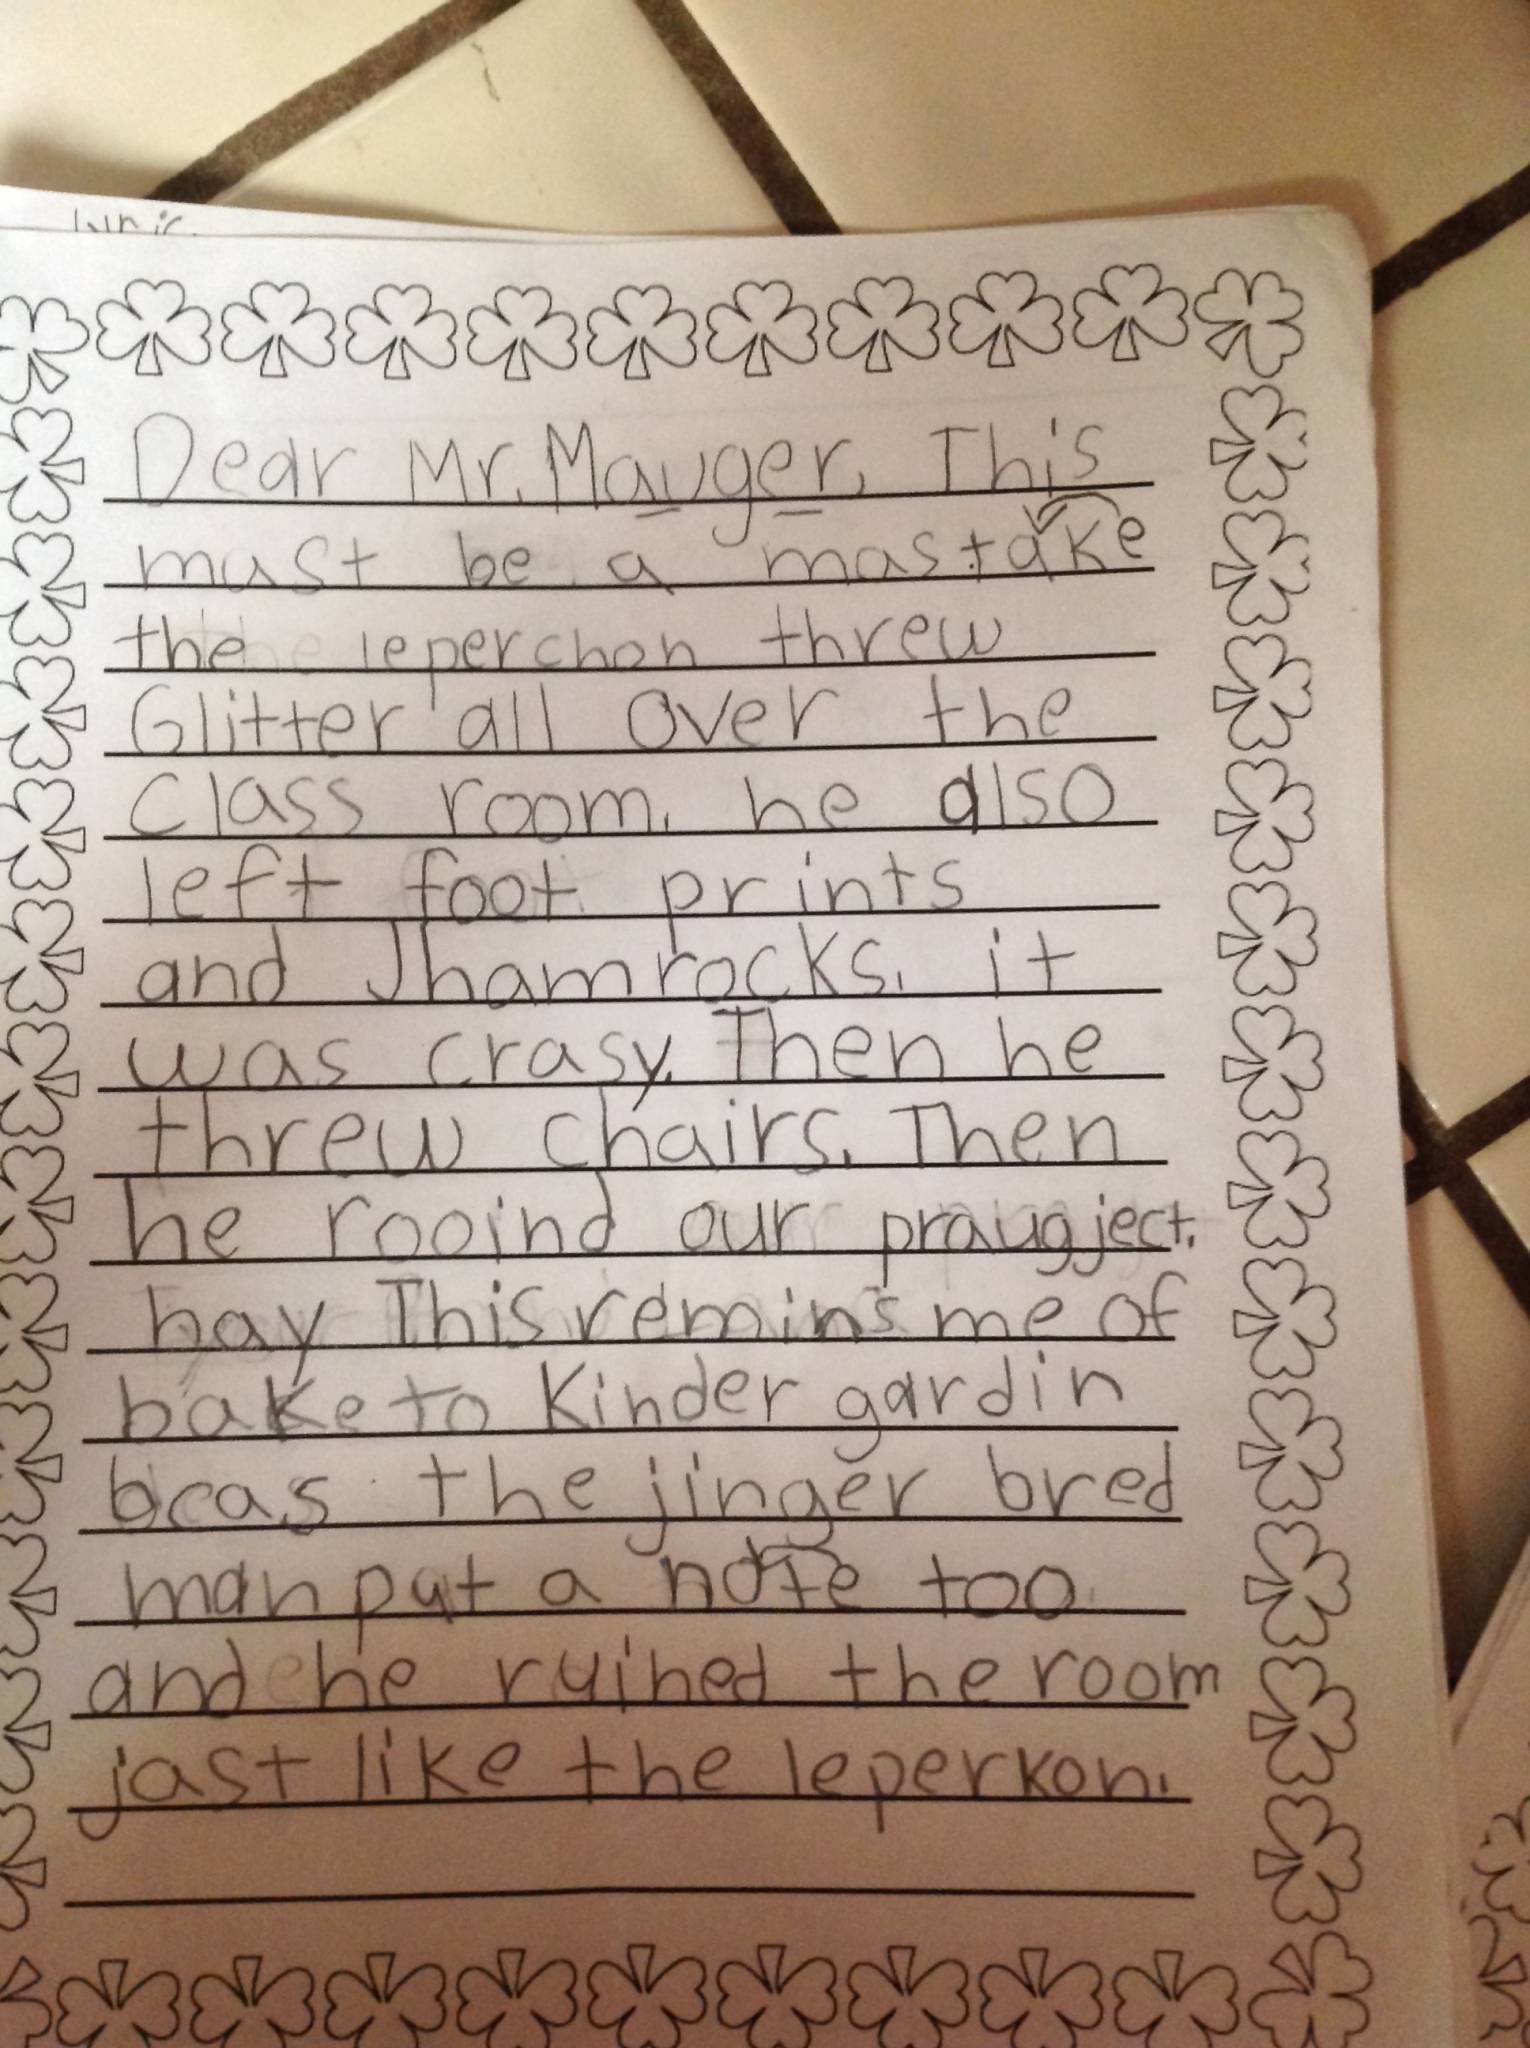 Dear Mr. Mauger, This
must be a mastake
the leperchon threw
Glitter all over the
Class room. he also
left foot prints
and Jhamrocks. it
was crasy. Then he
threw chairs. Then
he rooind our praugject.
hay This remins me of
bake to Kinder gardin
bcas the jinger bred
man put a note too
and he ruined the room
jast like the leperkon.